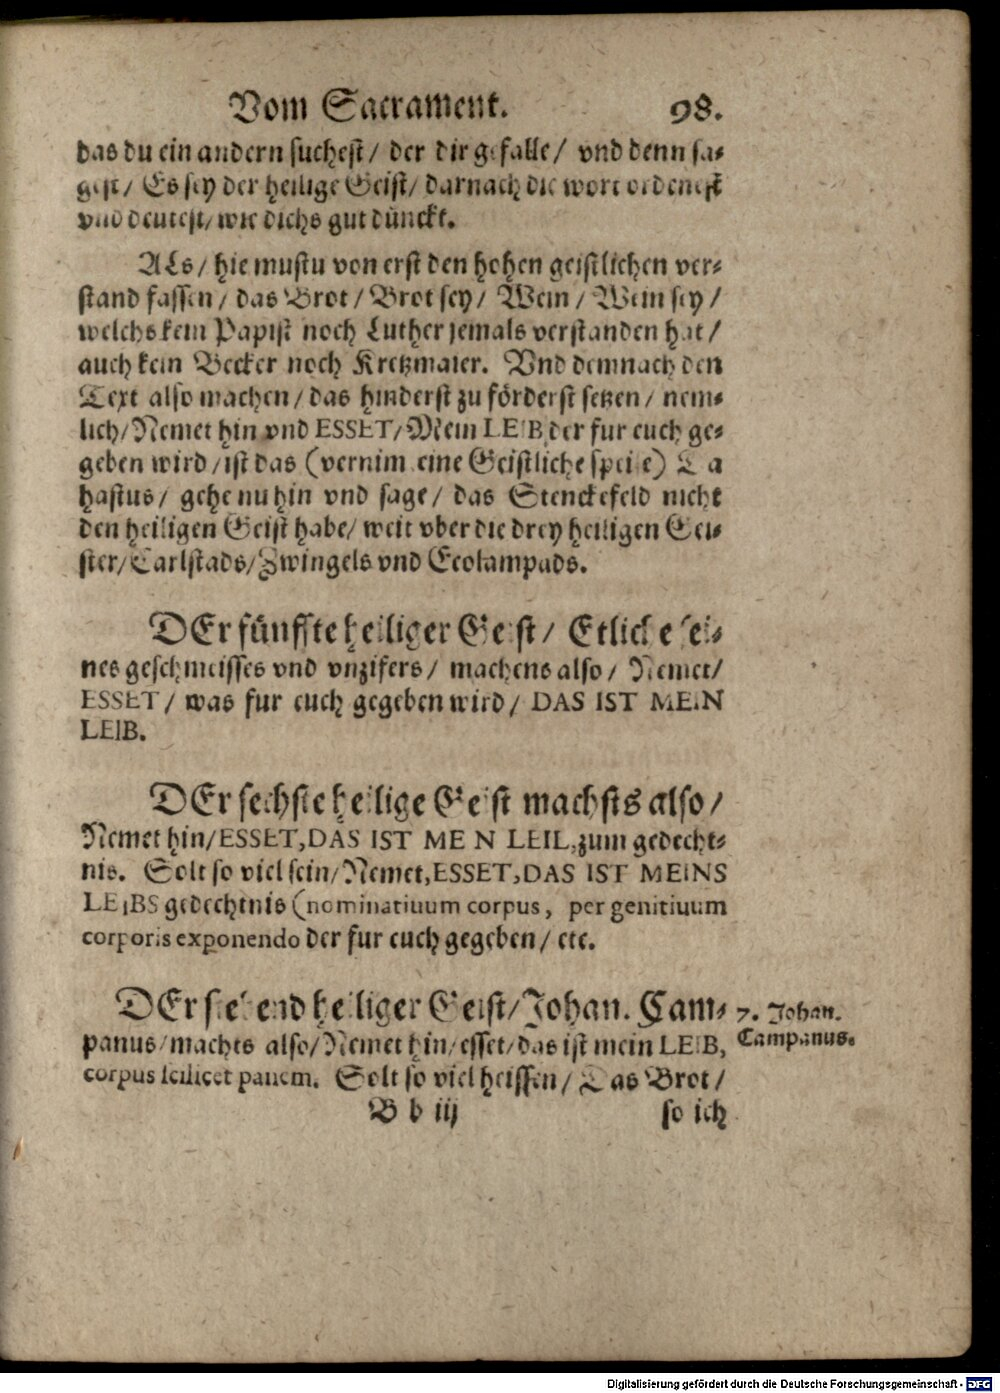 Vom Sacrament. 98.
das du ein andern suchest/ der dir gefalle/ vnd denn sa-
gest/ Es sey der heilige Geist/ darnach die wort ordenest
vnd deutest/ wie dichs gut dünckt.
ALs/ hie mustu von erst den hohen geistlichen ver-
stand fassen/ das Brot/ Brot sey/ Wein/ Wein sey/
welchs kein Papist noch Luther jemals verstanden hat/
auch kein Becker noch Kretzmaier. Vnd demnach den
Text also machen/ das hinderst zu förderst setzen/ nem-
lich/ Nemet hin vnd ESSET/ Mein LEIB der fur euch ge-
geben wird/ ist das (vernim eine Geistliche speise) Da
hastus/ gehe nu hin vnd sage/ das Stenckefeld nicht
den heiligen Geist habe/ weit vber die drey heiligen Gei-
ster/ Carlstads/ Zwingels vnd Ecolampads.
DEr fünffte heiliger Geist/ Etliche sei-
nes geschmeisses vnd vnzifers/ machens also/ Nemet/
ESSET/ was fur euch gegeben wird/ DAS IST MEIN
LEIB.
DEr sechste heilige Geist machsts also/
Nemet hin/ ESSET, DAS IST MEIN LEIB, zum gedecht-
nis. Solt so viel sein/ Nemet, ESSET, DAS IST MEINS
LEIBS gedechtnis (nominatiuum corpus, per genitiuum
corporis exponendo der fur euch gegeben/ etc.
DEr siebend heiliger Geist/ Johan. Cam-
panus/ machts also/ Nemet hin/ esset/ das ist mein LEIB,
corpus scilicet panem. Solt so viel heissen/ Das Brot/
B b iij so ich
7. Johan.
Campanus.
Digitalisierung gefördert durch die Deutsche Forschungsgemeinschaft - DFG